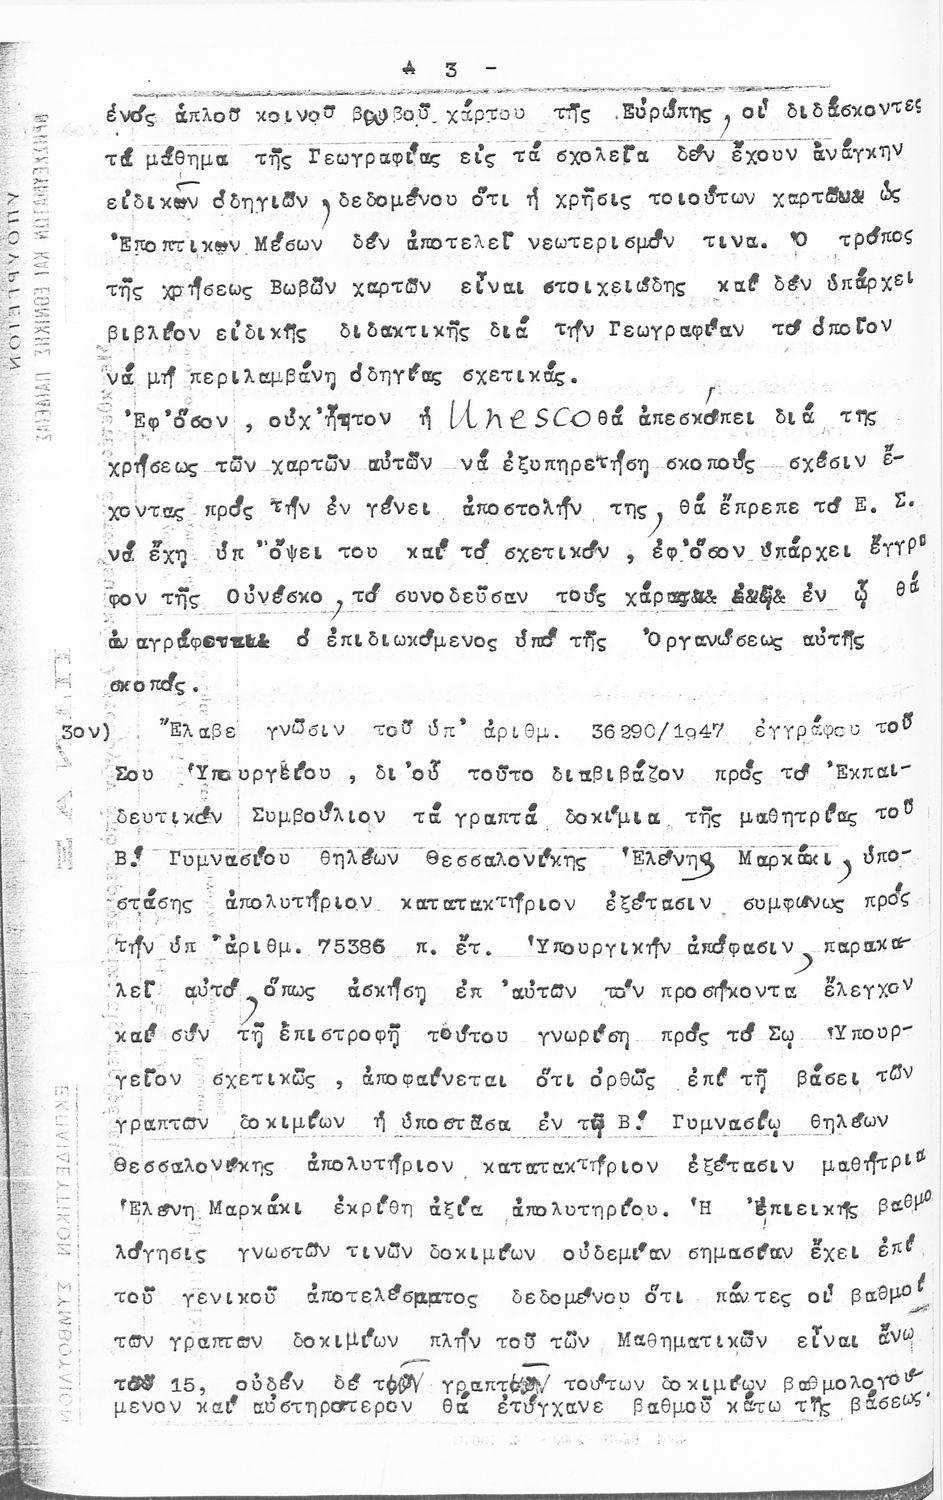 - 3 -
ἑνός ἁπλοῦ κοινοῦ βωβοῦ χάρτου τῆς Εὐρώπης, οἱ διδάσκοντες
τό μάθημα τῆς Γεωγραφίας εἰς τά σχολεῖα δέν ἔχουν ἀνάγκην
εἰδικῶν ὁδηγιῶν, δεδομένου ὅτι ἡ χρῆσις τοιούτων χαρτῶν ὡς
Ἐποπτικῶν Μέσων δέν ἀποτελεῖ νεωτερισμόν τινα. Ὁ τρόπος
τῆς χρήσεως Βωβῶν χαρτῶν εἶναι στοιχειώδης καί δέν ὑπάρχει
βιβλίον εἰδικῆς διδακτικῆς διά τήν Γεωγραφίαν τό ὁποῖον
νά μή περιλαμβάνῃ ὁδηγίας σχετικάς.
Ἐφ' ὅσον, οὐχ' ἧττον ἡ Unesco θά ἀπεσκόπει διά της
χρήσεως τῶν χαρτῶν αὐτῶν νά ἐξυπηρετήσῃ σκοπούς σχέσιν ἔ-
χοντας πρός τήν ἐν γένει ἀποστολήν της, θά ἔπρεπε τό Ε. Σ.
νά ἔχῃ ὑπ' ὄψει του καί τό σχετικόν, ἐφ' ὅσον ὑπάρχει ἔγγρα
φον τῆς Οὐνέσκο, τό συνοδεῦσαν τούς χάρτας ἐν ᾧ θά
ἀναγράφεται ὁ ἐπιδιωκόμενος ὑπό τῆς Ὀργανώσεως αὐτῆς
σκοπός.
3ον) Ἔλαβε γνῶσιν τοῦ ὑπ' ἀριθμ. 36290/1947 ἐγγράφου τοῦ
Σου Ὑπουργείου, δι' οὗ τοῦτο διαβιβάζον πρός τό Ἐκπαι-
δευτικόν Συμβούλιον τά γραπτά δοκίμια τῆς μαθητρίας τοῦ
Β! Γυμνασίου θηλέων Θεσσαλονίκης Ἑλένης Μαρκάκι, ὑπο-
στάσης ἀπολυτήριον κατατακτήριον ἐξέτασιν συμφώνως πρός
τήν ὑπ' ἀριθμ. 75386 π. ἔτ. Ὑπουργικήν ἀπόφασιν, παρακα-
λεῖ αὐτό, ὅπως ἀσκήσῃ ἐπ' αὐτῶν τόν προσήκοντα ἔλεγχον
καί σύν τῇ ἐπιστροφῇ τούτου γνωρίσῃ πρός τό Σῳ Ὑπουρ-
γεῖον σχετικῶς, ἀποφαίνεται ὅτι ὀρθῶς ἐπί τῇ βάσει τῶν
γραπτων δοκιμίων ἡ ὑποστᾶσα ἐν τῷ Β! Γυμνασίῳ θηλέων
Θεσσαλονίκης ἀπολυτήριον κατατακτήριον ἐξέτασιν μαθήτρια
Ἑλενη Μαρκάκι ἐκρίθη ἀξία ἀπολυτηρίου. Ἡ Ἐπιεικής βαθμο
λόγησις γνωστῶν τινῶν δοκιμίων οὐδεμίαν σημασίαν ἔχει ἐπί
τοῦ γενικοῦ ἀποτελέσματος δεδομένου ὅτι πάντες οἱ βαθμοί
των γραπτων δοκιμίων πλήν τοῦ τῶν Μαθηματικῶν εἶναι ἄνω
τοῦ 15, οὐδέν δέ τῶν γραπτῶν τούτων δοκιμίων βαθμολογού-
μενον καί αὐστηρότερον θά ἐτύγχανε βαθμοῦ κάτω τῆς βάσεως.